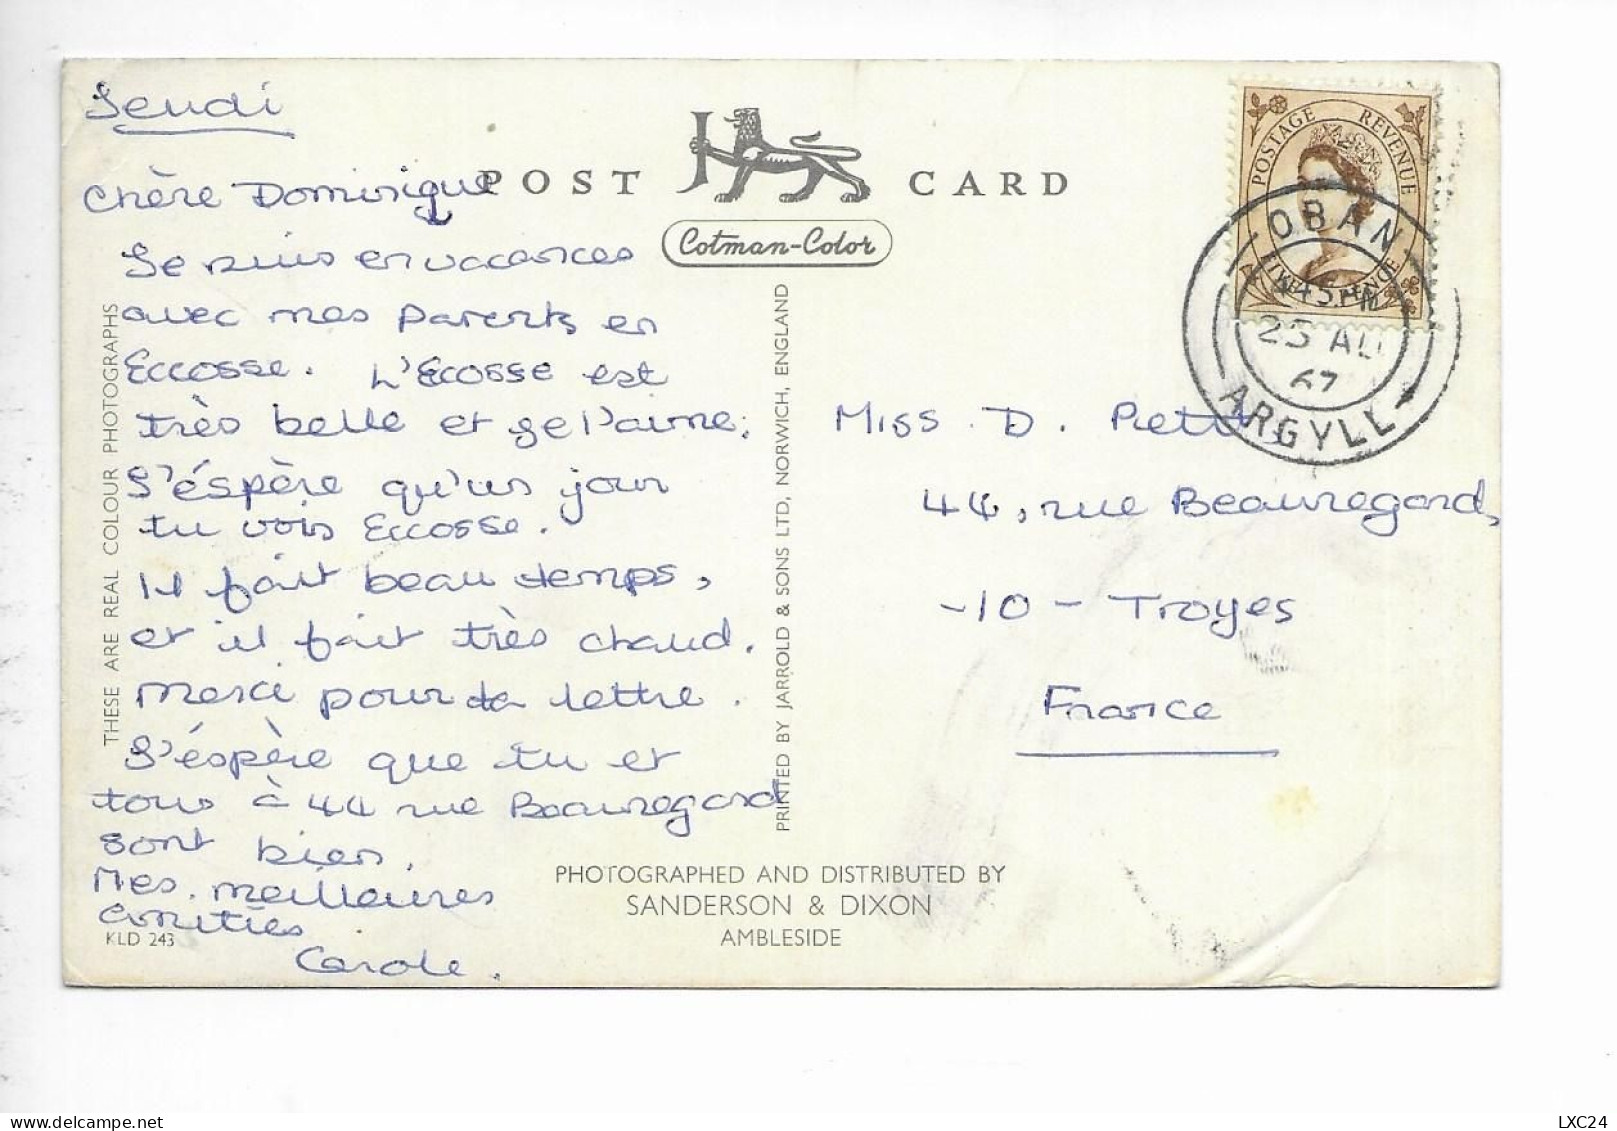 Jeudi
Chère Dominique
Je suis en vacances
avec mes parents en
Eccosse. L'Ecosse est
très belle et je l'aime.
J'éspère qu'un jour
tu vois Eccosse.
Il fait beau temps,
et il fait très chaud.
Merci pour ta lettre.
J'éspère que tu et
tous à 44 rue Beauregard
sont bien.
Mes meilleures
amitiés
Carole.
POST CARD
Cotman-Color
THESE ARE REAL COLOUR PHOTOGRAPHS
PRINTED BY JARROLD & SONS LTD, NORWICH, ENGLAND
PHOTOGRAPHED AND DISTRIBUTED BY
SANDERSON & DIXON
AMBLESIDE
KLD 243
POSTAGE REVENUE
FIVE PENCE
OBAN
25 AU
67
ARGYLL
Miss D. Petit,
44, rue Beauregard,
-10- Troyes
France
LXC24